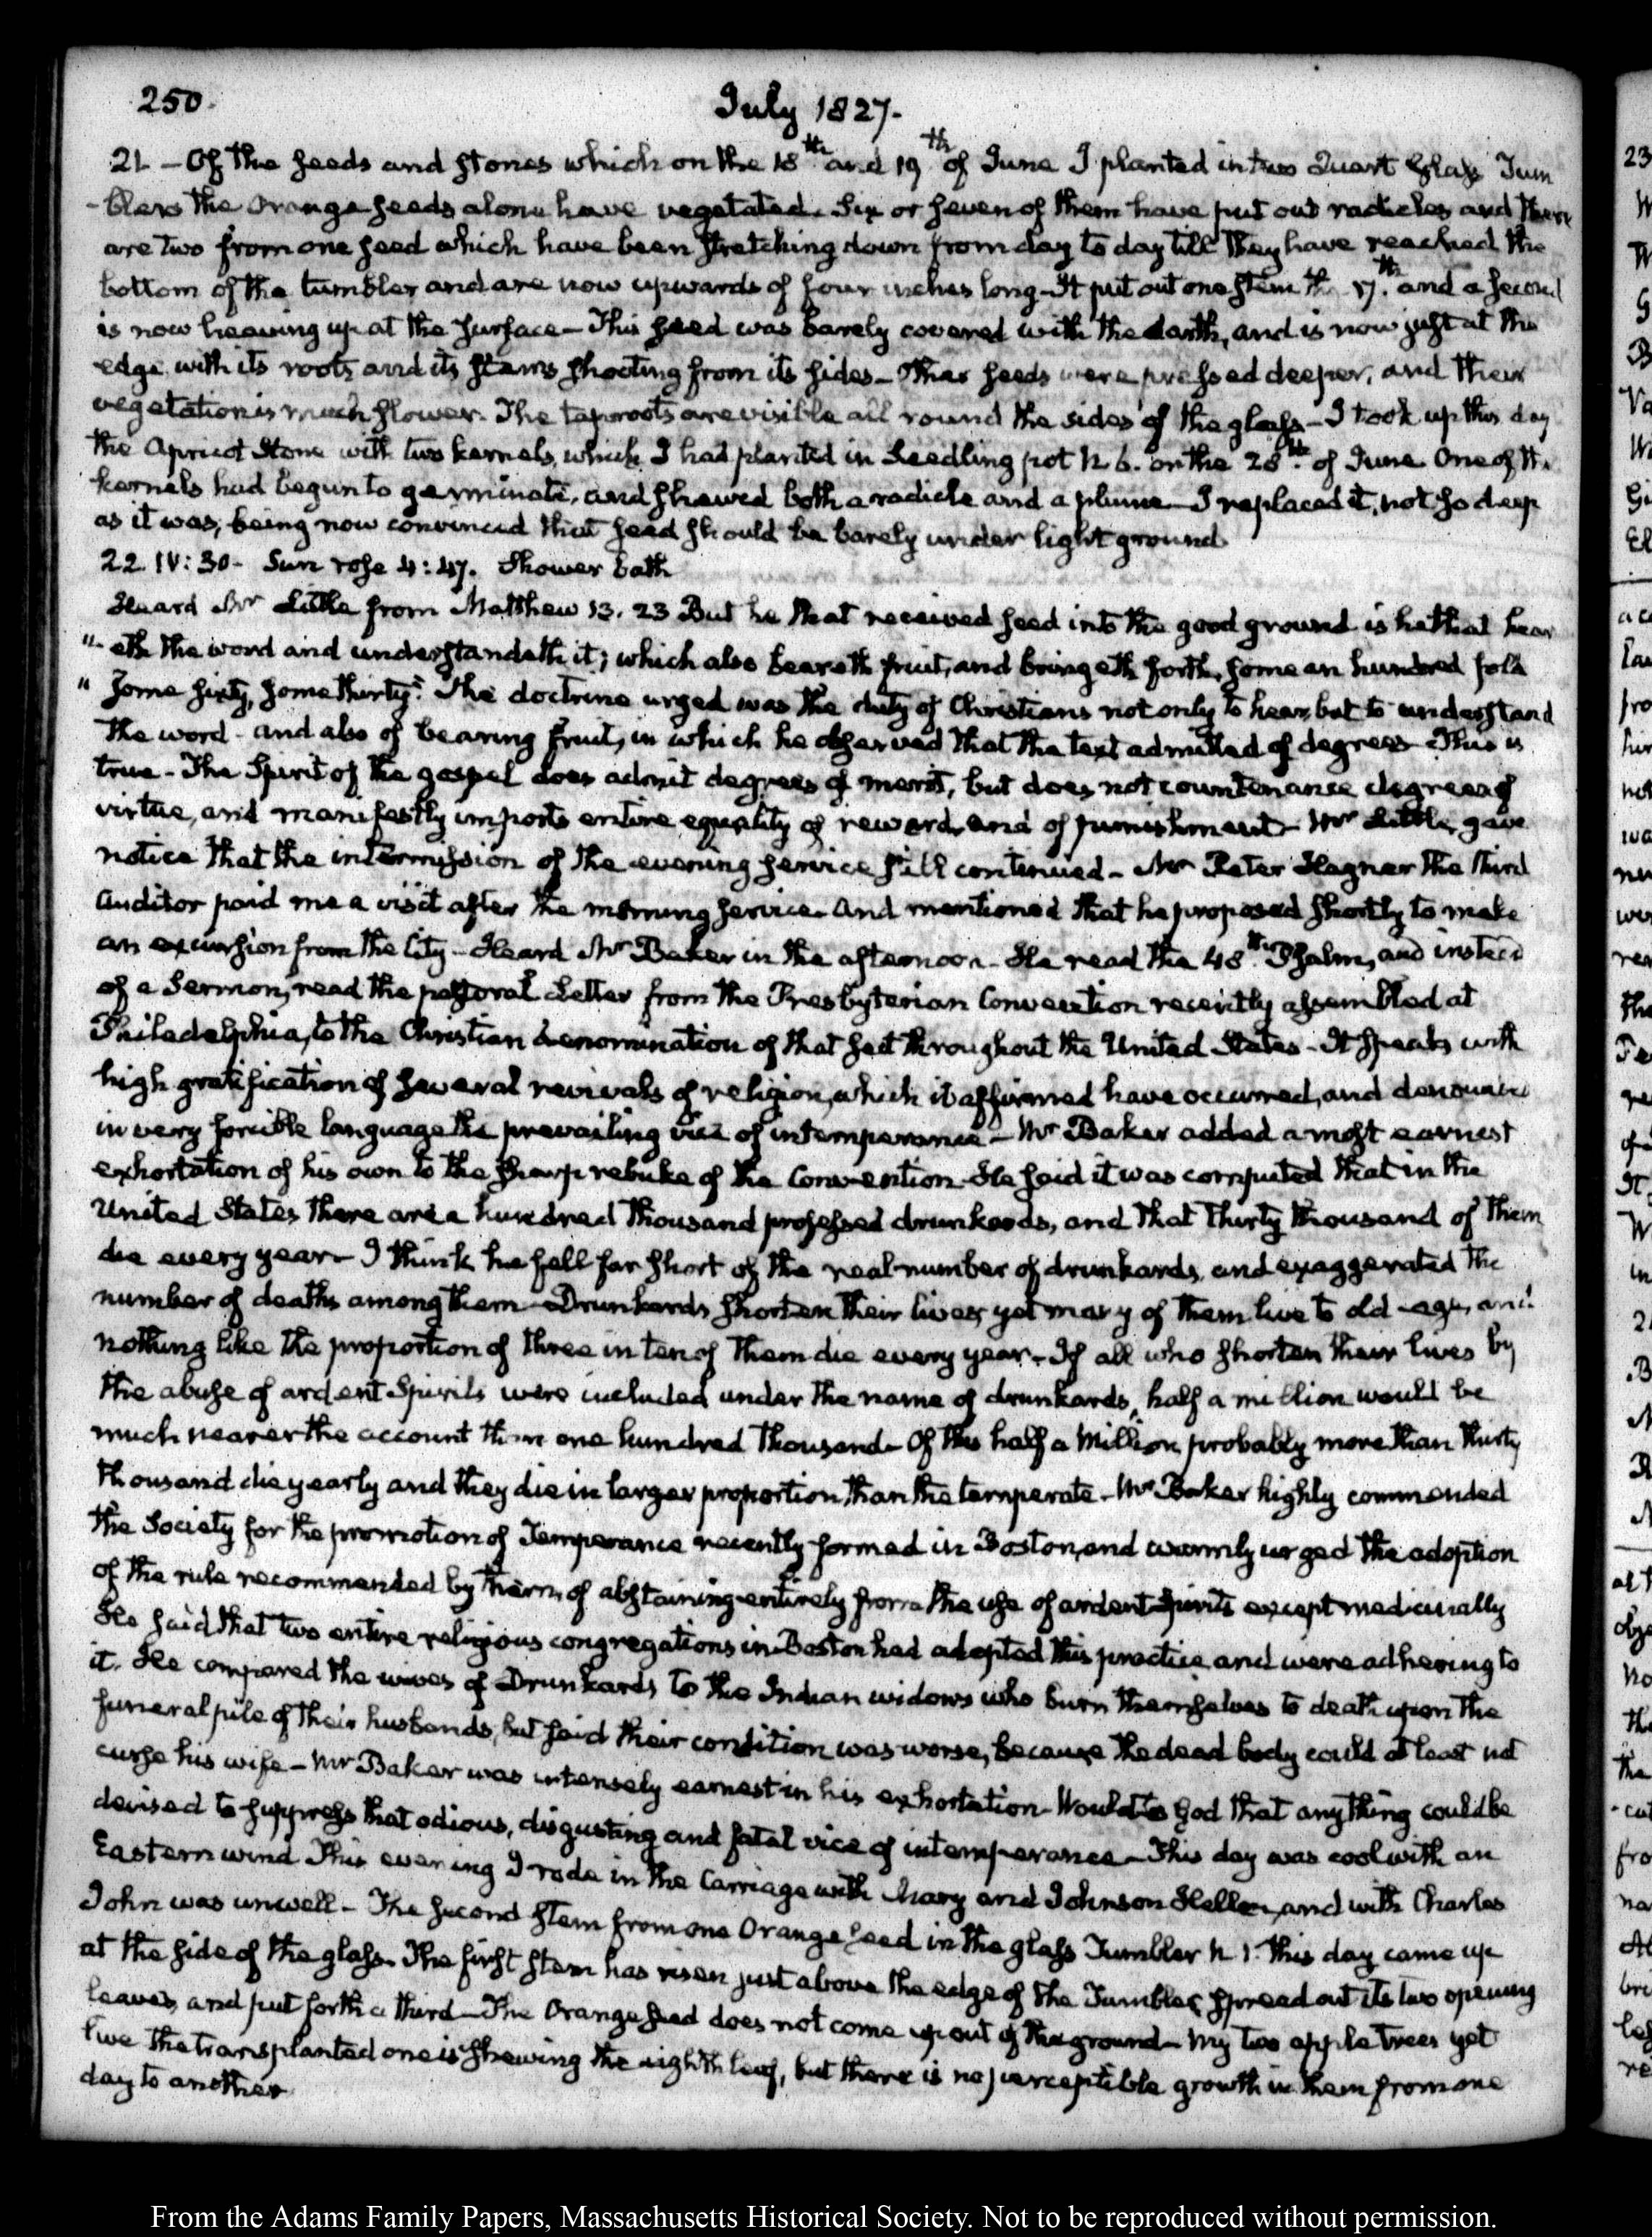 250.
July 1827.
21 - Of the seeds and stones which on the 18th and 19th of June I planted in two Quart Glass Tum
-blers the Orange seeds alone have vegetated. Six or seven of them have put out radicles and there
are two from one seed which have been stretching down from day to day till they have reached the
bottom of the tumbler and are now upwards of four inches long - It put out one stem the 17th. and a second
is now heaving up at the surface - This seed was barely covered with the Earth, and is now just at the
edge, with its roots and its stems shooting from its sides - Other seeds were pressed deeper, and their
vegetation is much slower. The taproots are visible all round the sides of the glass - I took up this day
the Apricot Stone with two kernels, which I had planted in Seedling pot N. 6. on the 28th. of June One of the
kernels had begun to germinate, and shewed both a radicle and a plume - I replaced it, not so deep
as it was, being now convinced that seed should be barely under light ground
22. IV:30 - Sun rose 4:47. Shower bath
Heard Mr Little from Matthew 13. 23 But he that received seed into the good ground is he that hear
"-eth the word and understandeth it; which also beareth fruit, and bringeth forth, some an hundred fold
" some sixty, some thirty." The doctrine urged was the duty of Christians not only to hear, but to understand
the word - and also of bearing fruit, in which he observed that the text admitted of degrees - This is
true - The Spirit of the gospel does admit degrees of merit, but does not countenance degrees of
virtue, and manifestly imports entire equality of reward, and of punishment - Mr Little gave
notice that the intermission of the evening service still continued - Mr Peter Hagner the third
Auditor paid me a visit after the morning service - and mentioned that he proposed shortly to make
an excursion from the City - Heard Mr Baker in the afternoon - He read the 48th. Psalm, and instead
of a Sermon, read the pastoral Letter from the Presbyterian Convention recently assembled at
Philadelphia, to the Christian denomination of that sect throughout the United States - It speaks with
high gratification of several revivals of religion, which it affirmed have occurred, and denounced
in very forcible language the prevailing vice of intemperance - Mr Baker added a most earnest
exhortation of his own to the sharp rebuke of the Convention - He said it was computed that in the
United States there are a hundred thousand professed drunkards, and that thirty thousand of them
die every year - I think he fell far short of the real number of drunkards, and exaggerated the
number of deaths among them - Drunkards shorten their lives, yet many of them live to old age, and
nothing like the proportion of three in ten of them die every year - If all who shorten their lives by
the abuse of ardent Spirits were included under the name of drunkards, half a million would be
much nearer the account than one hundred thousand - Of this half a Million, probably more than thirty
thousand die yearly and they die in larger proportion than the temperate - Mr Baker highly commended
the Society for the promotion of Temperance recently formed in Boston, and warmly urged the adoption
of the rule recommended by them, of abstaining entirely from the use of ardent Spirits except medicinally
He said that two entire religious congregations in Boston had adopted this practice and were adhering to
it. He compared the wives of Drunkards to the Indian widows who burn themselves to death upon the
funeral pile of their husbands, but said their condition was worse, because the dead body could at least not
curse his wife - Mr Baker was intensely earnest in his exhortation - Would to God that any thing could be
devised to suppress that odious, disgusting and fatal vice of intemperance - This day was cool with an
Eastern wind This evening I rode in the Carriage with Mary and Johnson Hellen, and with Charles
John was unwell - The second stem from one Orange seed in the glass Tumbler N. 1. this day came up
at the side of the glass. The first stem has risen just above the edge of the Tumbler, spread out its two opening
leaves, and put forth a third - The Orange seed does not come up out of the ground - My two apple trees yet
live The transplanted one is shewing the eighth leaf, but there is no perceptible growth in them from one
day to another
From the Adams Family Papers, Massachusetts Historical Society. Not to be reproduced without permission.